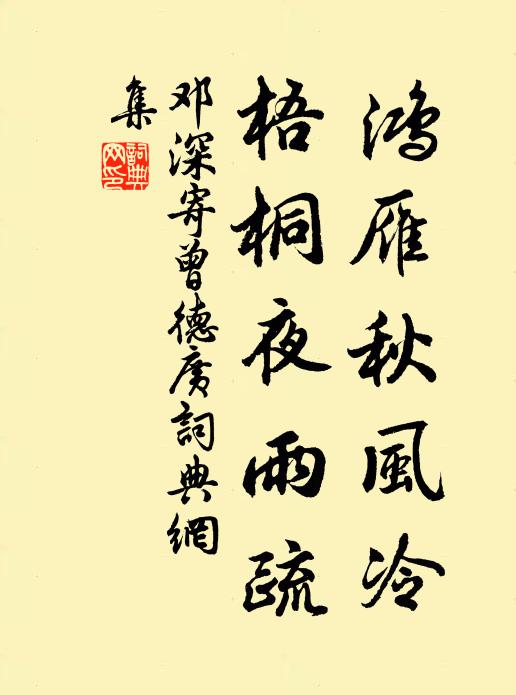 鸿雁秋風冷
梧桐夜雨疏
邓深寄曾德廣詞典網
集
詞典
网印